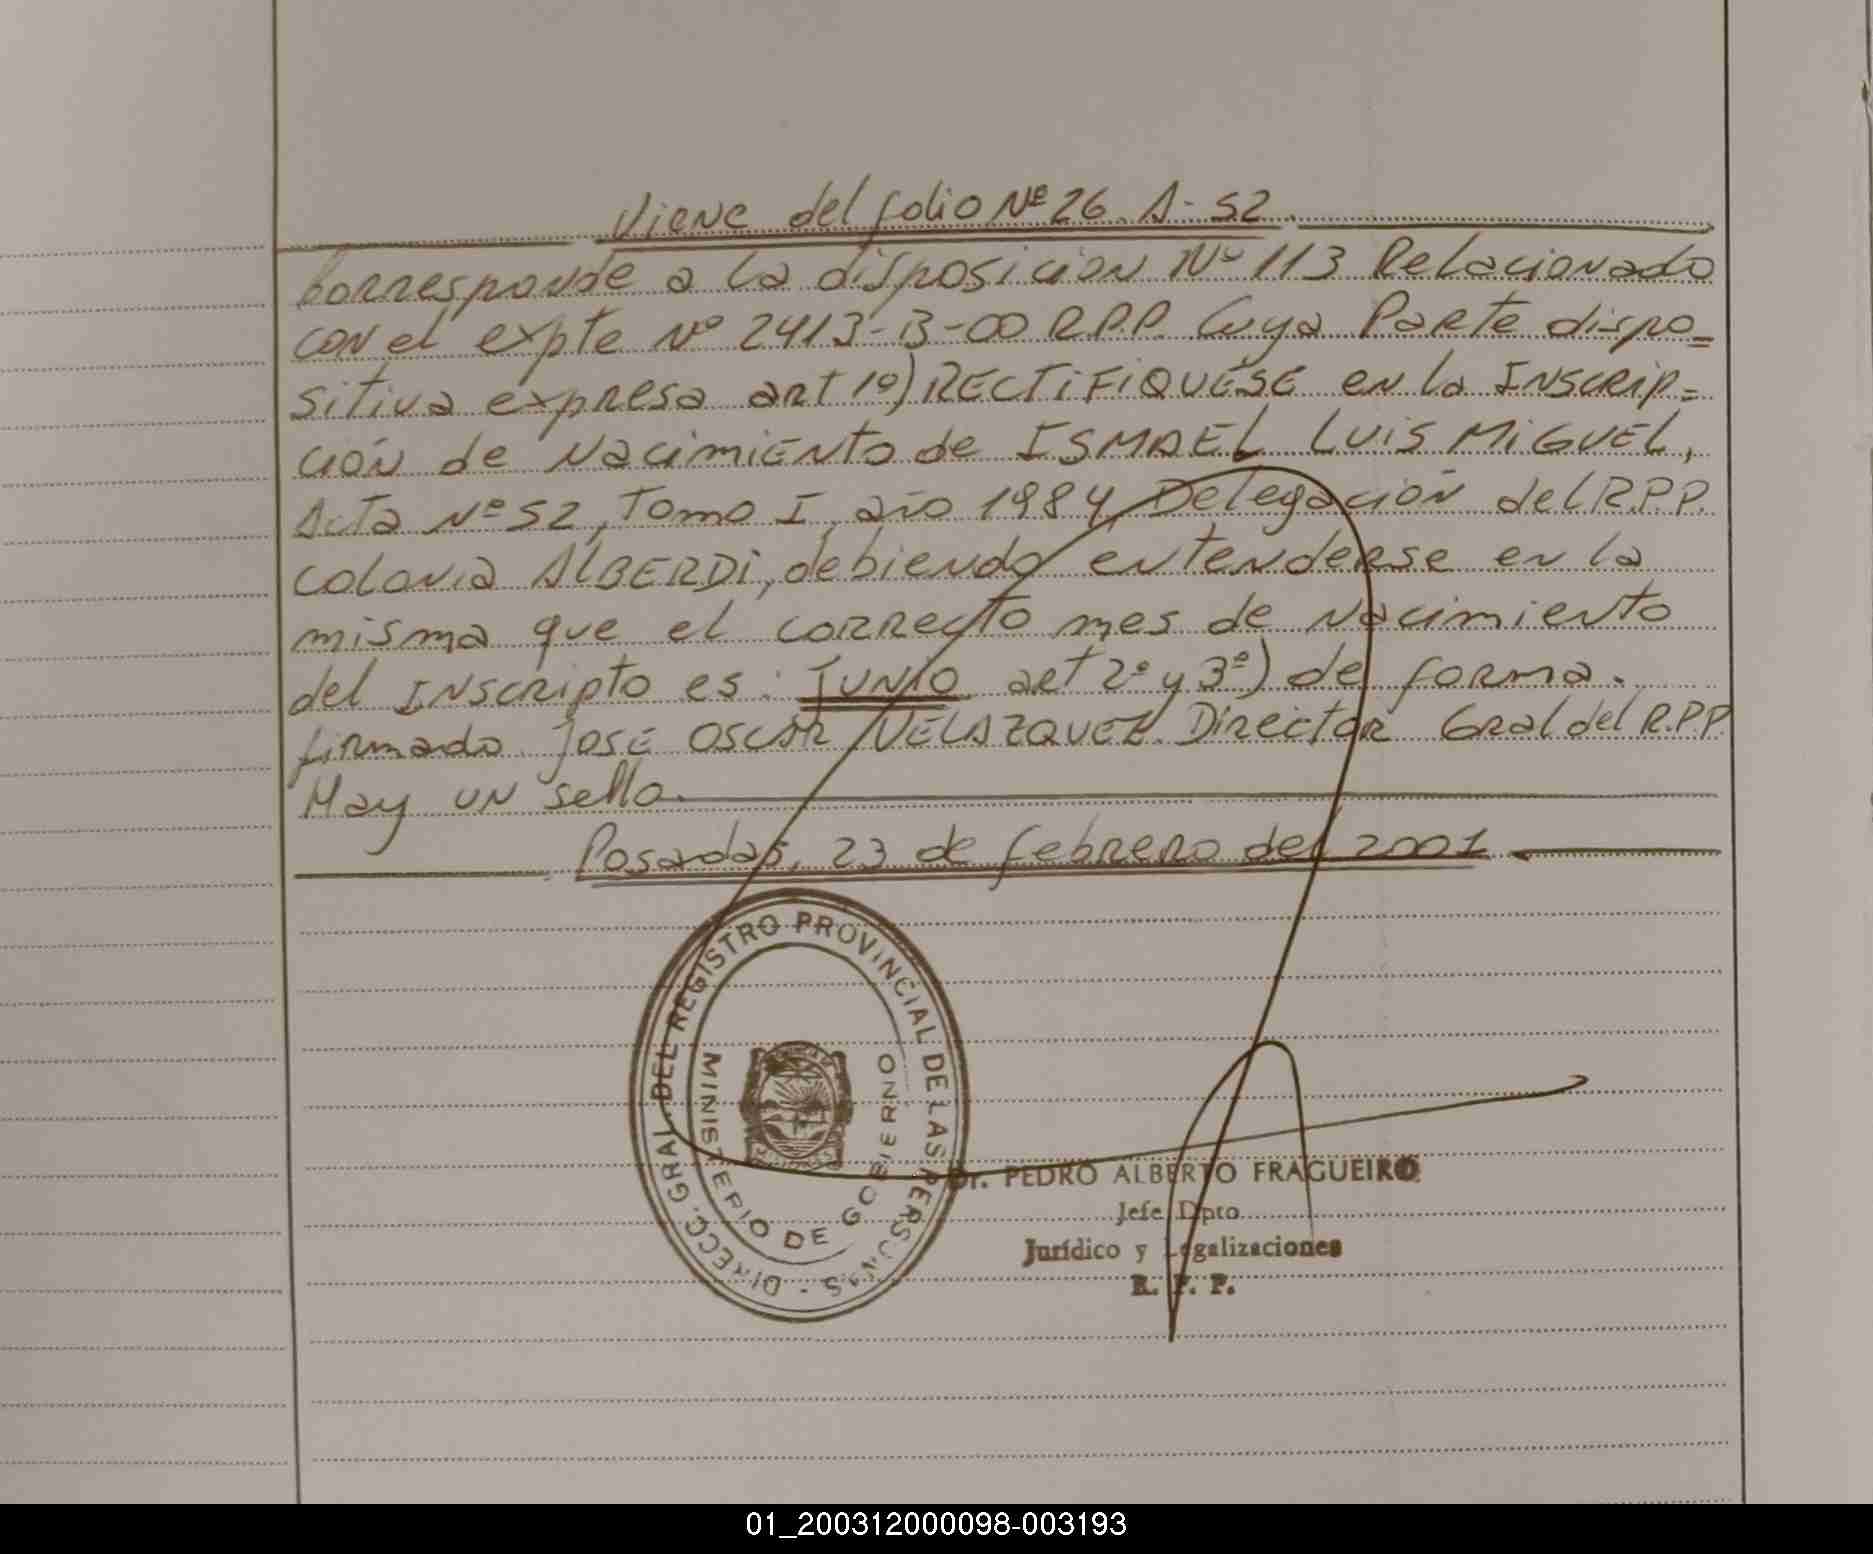 Viene del folio Nº 26 A-52.
Corresponde a la disposicion Nº 113 Relacionado
con el expte Nº 2413-B-00 R.P.P. Cuya Parte dispo=
sitiva expresa art 1º) RECTIFIQUESE en la INSCRIP=
ción de Nacimiento de ISMAEL LUIS MIGUEL,
Acta Nº 52, Tomo I, año 1984, Delegación del R.P.P.
COLONIA ALBERDI, debiendo entenderse en la
misma que el correcto mes de Nacimiento
del INScripto es: JUNIO art 2º y 3º) de forma.
firmado JOSE OSCAR VELAZQUEZ. Director Gral del R.P.P.
Hay un sello.
Posadas, 23 de febrero del 2001
DIRECC. GRAL. DEL REGISTRO PROVINCIAL DE LAS PERSONAS -
MINISTERIO DE GOBIERNO
Dr. PEDRO ALBERTO FRAGUEIRO
Jefe Dpto.
Jurídico y Legalizaciones
R. P. P.
01_200312000098-003193